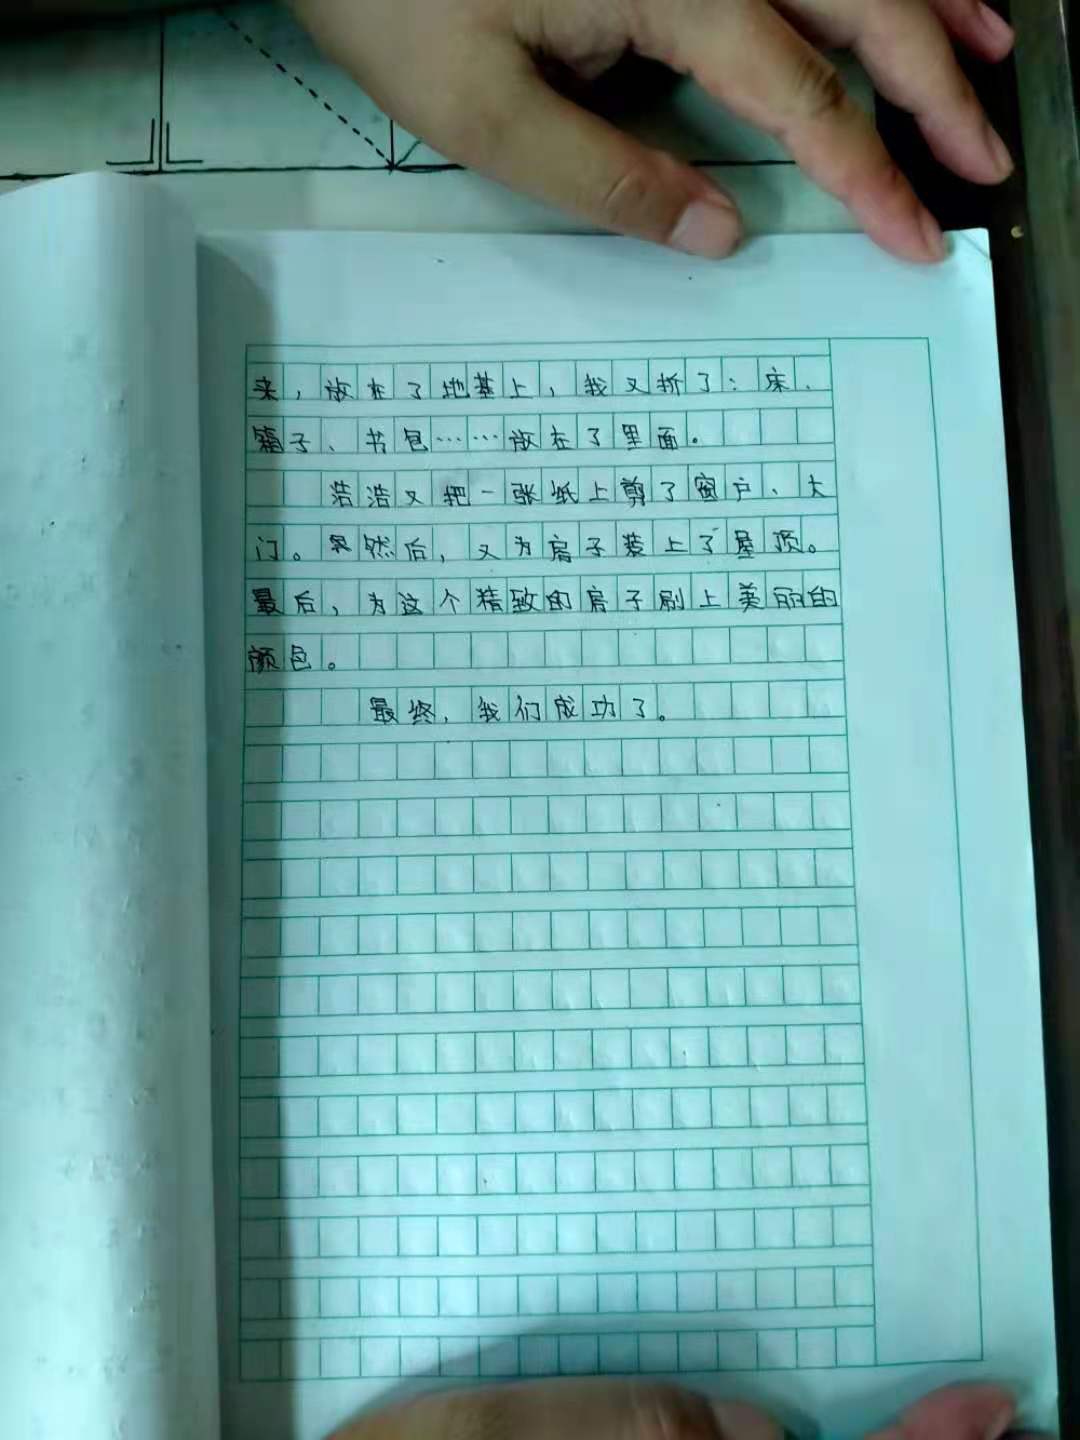 来，放在了地基上，我又折了：床、
箱子、书包……放在了里面。
浩浩又把一张纸上剪了窗户、大
门。然后，又为房子装上了屋顶。
最后，为这个精致的房子刷上美丽的
颜色。
最终，我们成功了。